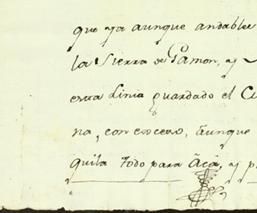 que ya aunque andable
la Sierra de Gamon, y
esta Linia guardado el C
na, con exceso, aunque
quila todo para Acá, y p